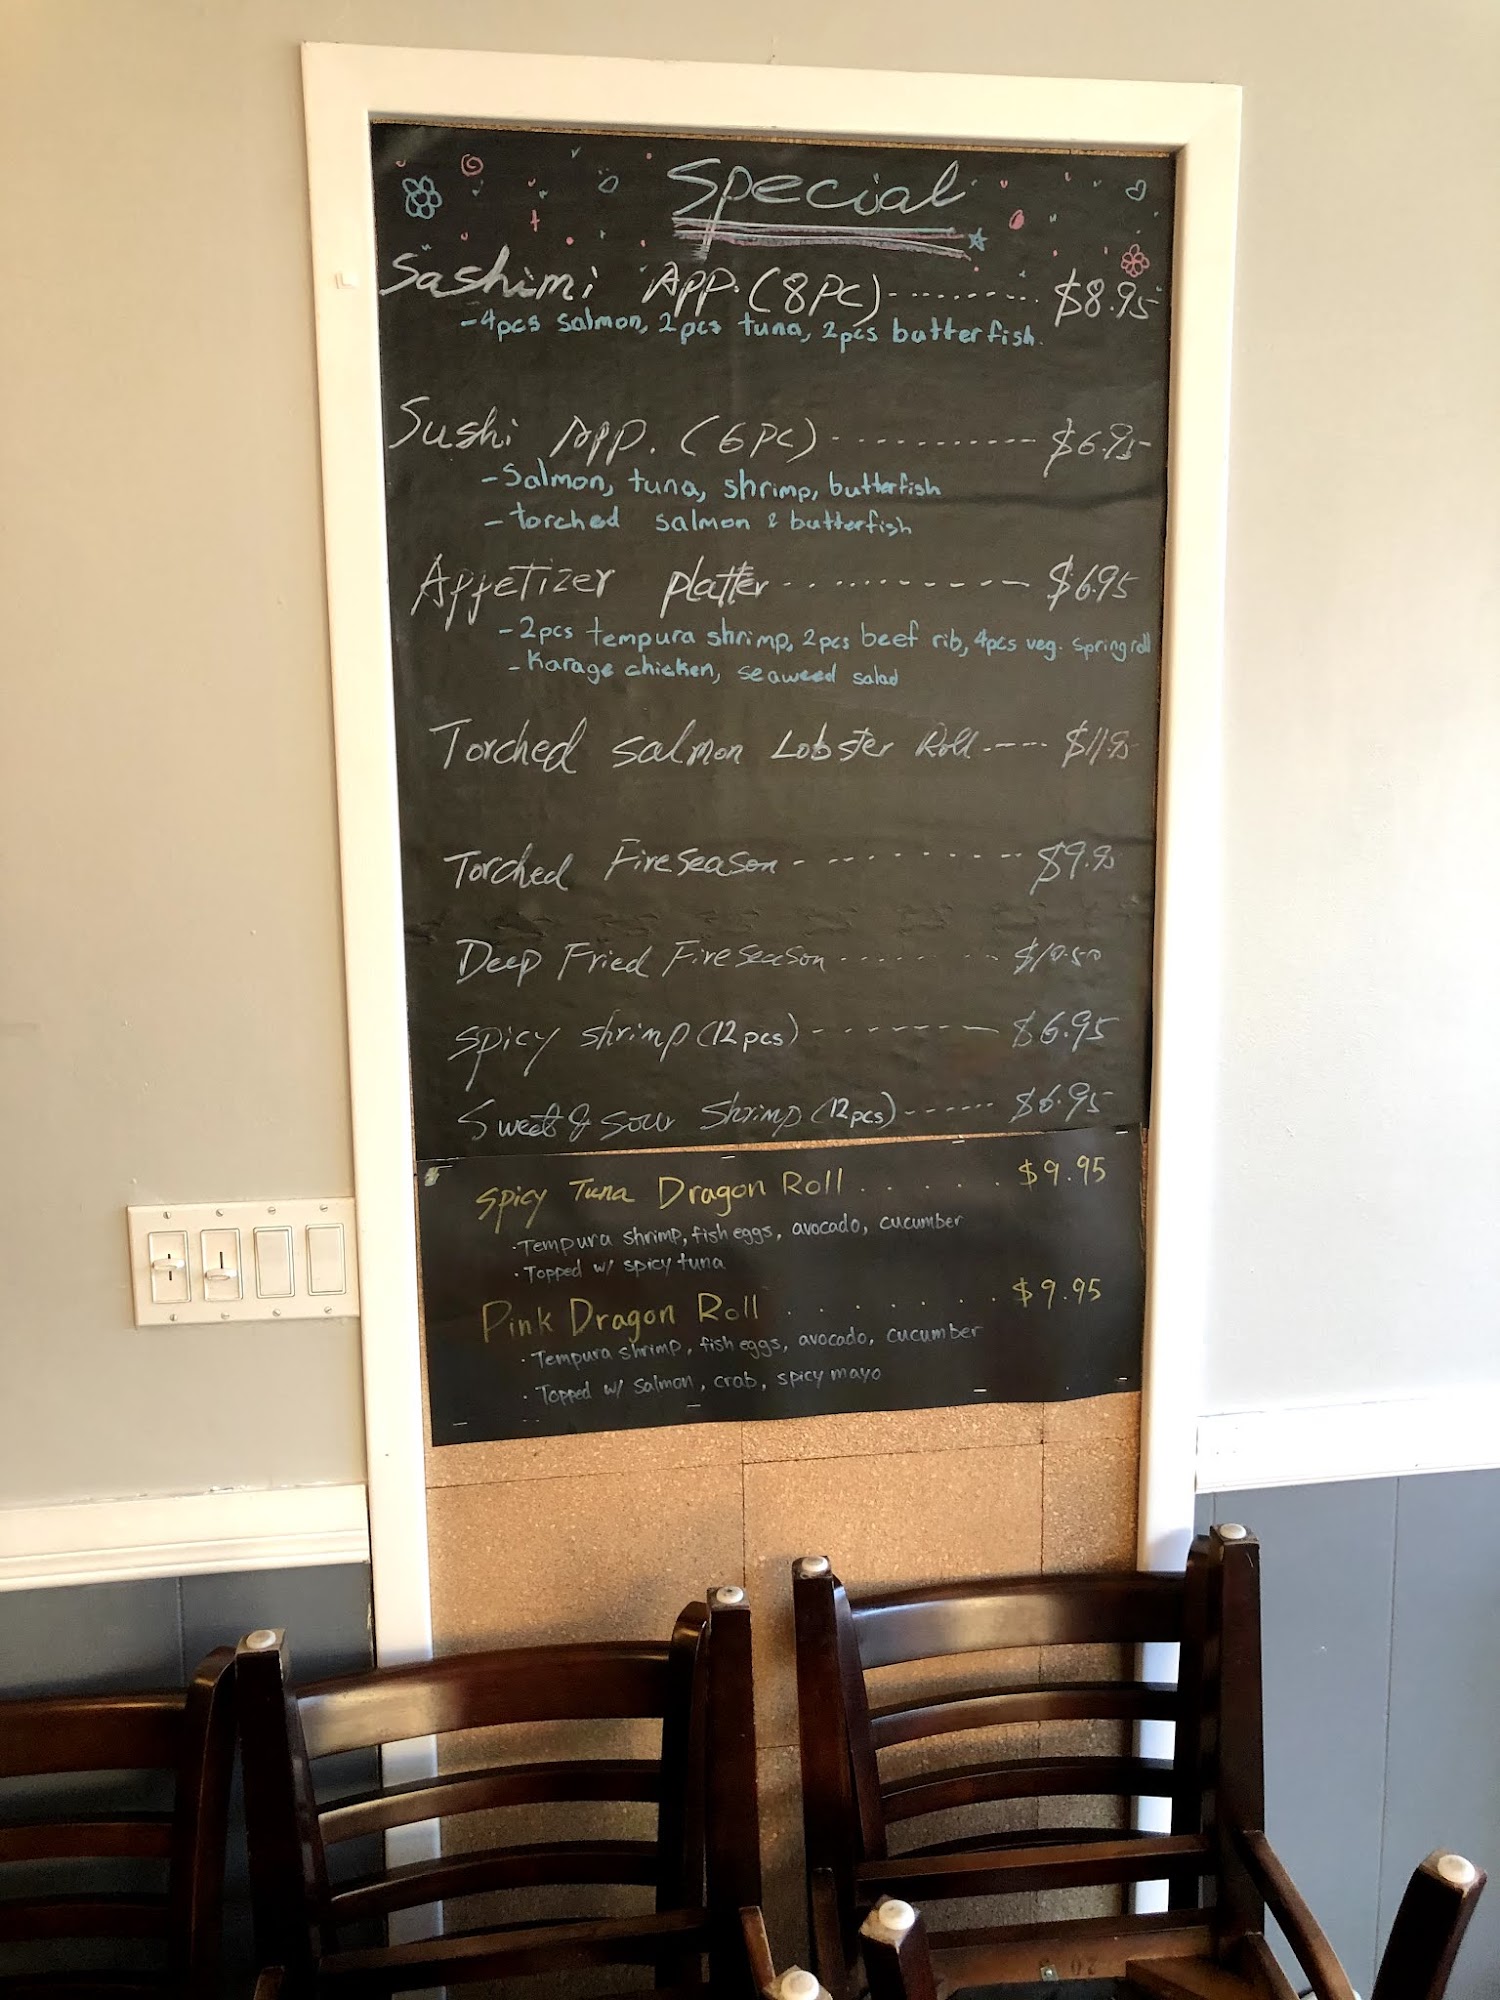 Special
Sashimi App. (8PC) --------- $8.95
-4pcs salmon, 2pcs tuna, 2pcs butterfish.
Sushi App. (6PC) ----------- $6.95
-Salmon, tuna, shrimp, butterfish
-torched salmon & butterfish
Appetizer platter ----------- $6.95
-2pcs tempura shrimp, 2pcs beef rib, 4pcs veg. spring roll
-Karage chicken, seaweed salad
Torched Salmon Lobster Roll ---- $11.95
Torched Fireseason --------- $9.95
Deep Fried Fireseason ........ $10.50
Spicy shrimp (12pcs) --------- $6.95
Sweet & Sour Shrimp (12pcs) ------ $6.95
Spicy Tuna Dragon Roll ...... $9.95
·Tempura shrimp, fish eggs, avocado, cucumber
·Topped w/ spicy tuna
Pink Dragon Roll ........ $9.95
·Tempura shrimp, fish eggs, avocado, cucumber
·Topped w/ Salmon, crab, spicy mayo